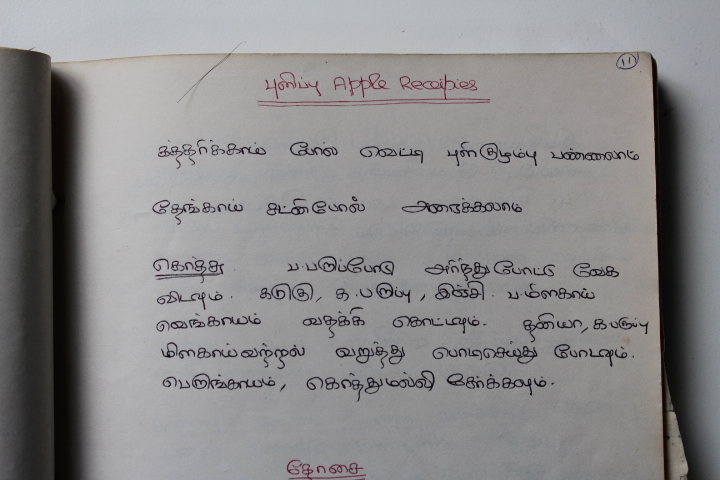 11
புளிப்பு Apple Receipies
கத்தரிக்காய் போல வெட்டி புளிகுழம்பு பண்ணலாம்
தேங்காய் சட்னிபோல் அரைக்கலாம்
கொத்சு ப.பருப்போடு அரிந்து போட்டு வேக
விடவும். கடுகு, க.பருப்பு, இஞ்சி. ப.மிளகாய்
வெங்காயம் வதக்கி கொட்டவும். தனியா, க.பருப்பு
மிளகாய்வற்றல் வறுத்து பொடிசெய்து போடவும்.
பெருங்காயம், கொத்துமல்லி சேர்க்கவும்.
தோசை